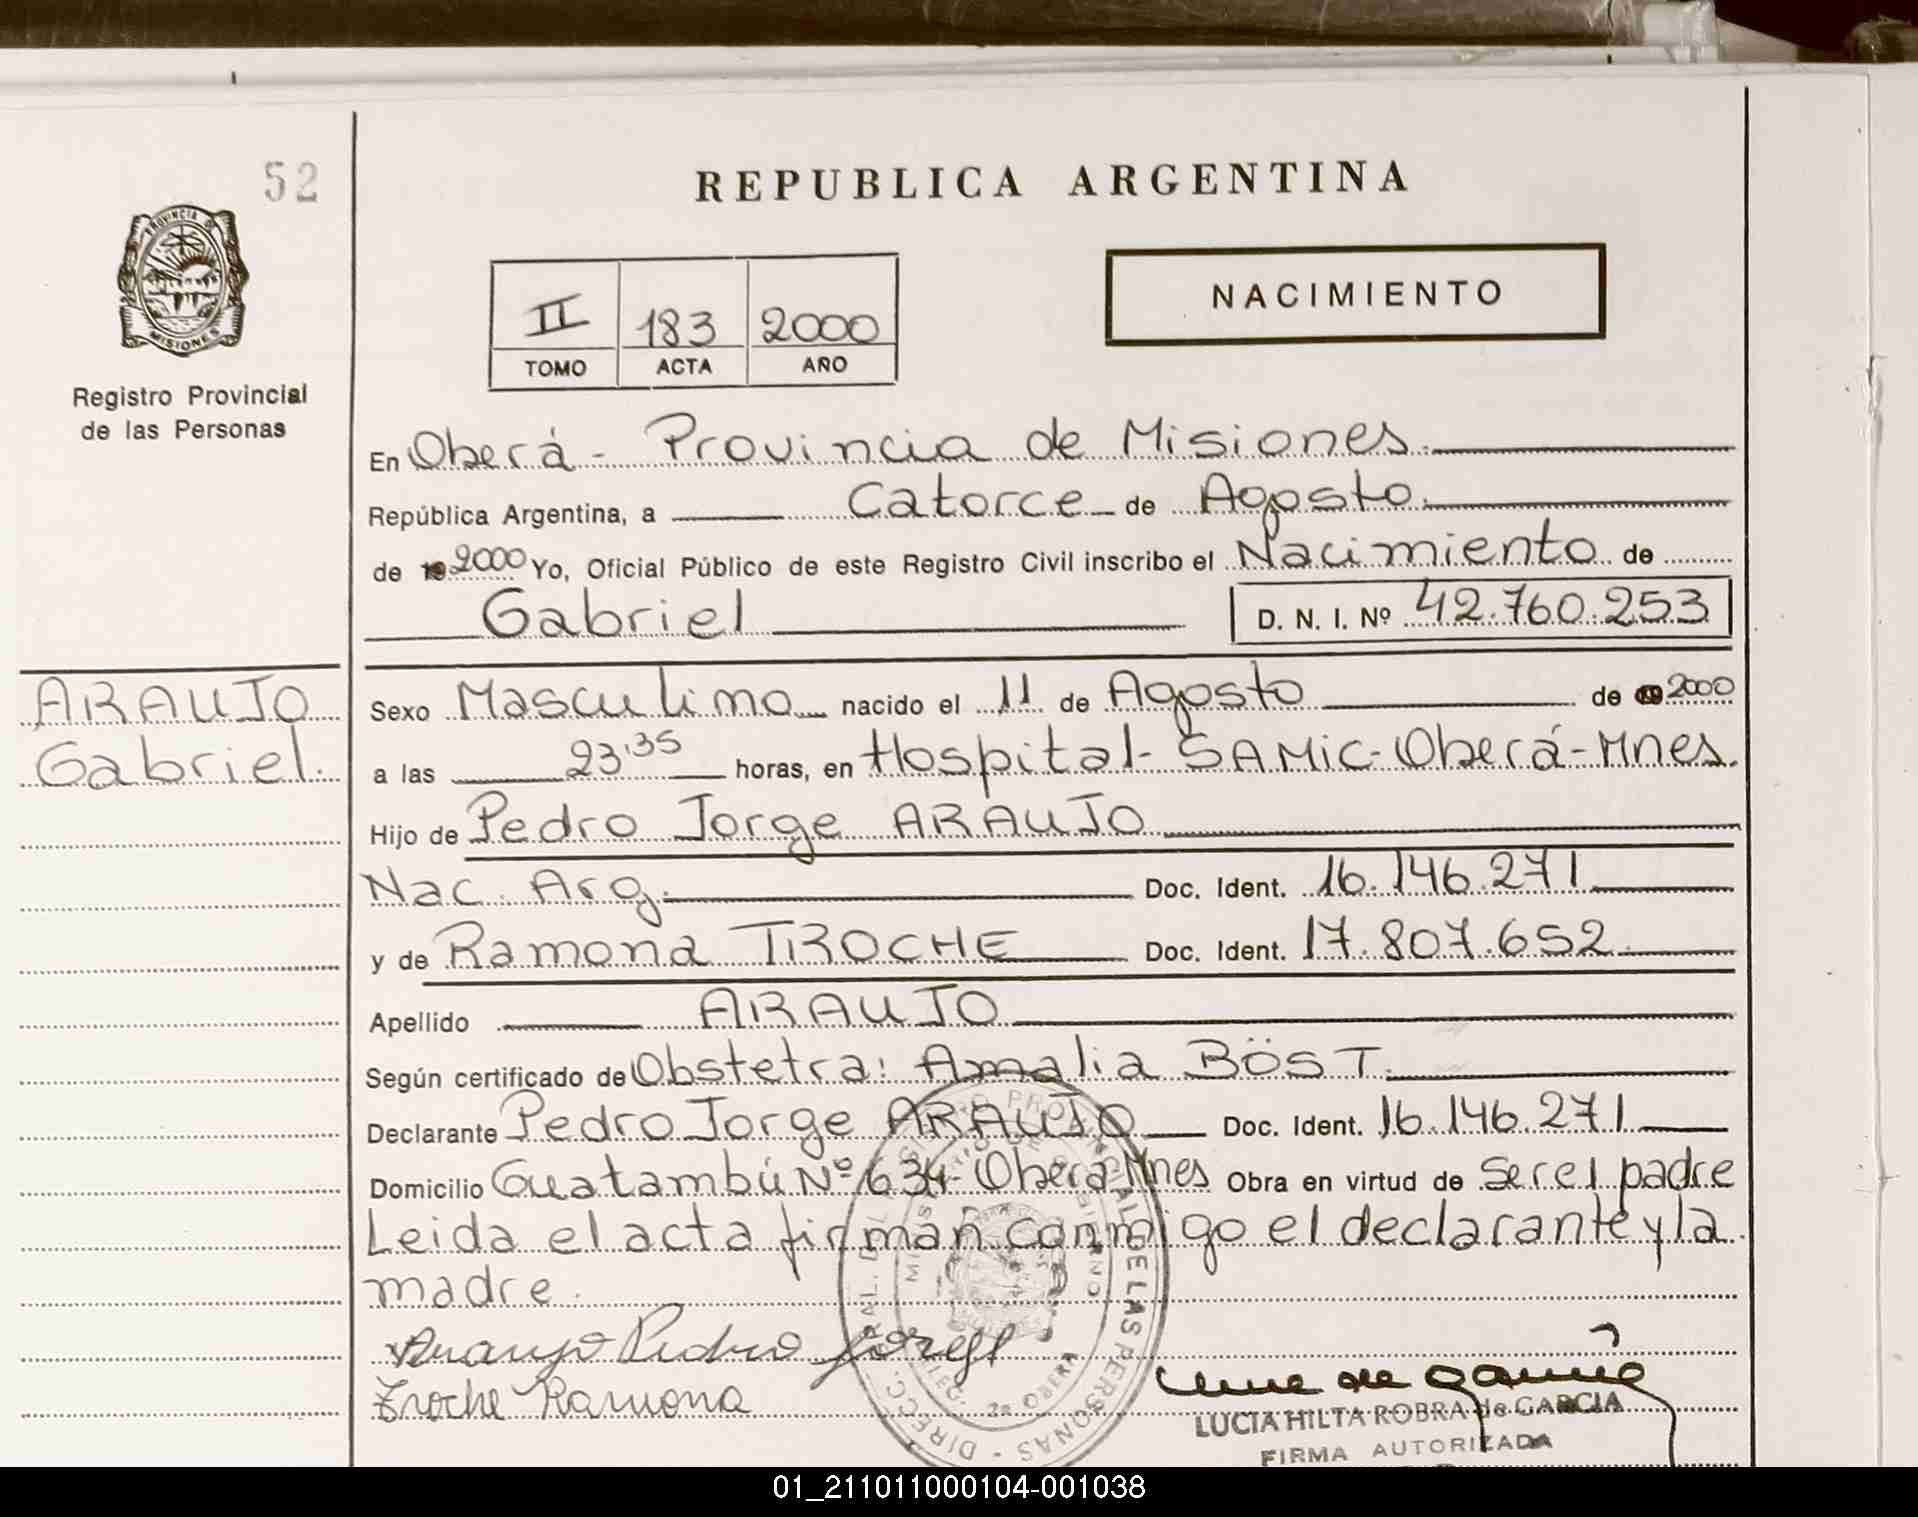 52
REPUBLICA ARGENTINA
PROVINCIA DE
MISIONES
Registro Provincial
de las Personas
II 183 2000
TOMO ACTA AÑO
NACIMIENTO
En Oberá - Provincia de Misiones.
República Argentina, a Catorce de Agosto.
de 19 2000 Yo, Oficial Público de este Registro Civil inscribo el Nacimiento de
Gabriel D. N. I. Nº 42.760.253
ARAUJO
Gabriel.
Sexo Masculino nacido el 11 de Agosto de 2000
a las 23,35 horas, en Hospital- SAMIC-Oberá-Mnes.
Hijo de Pedro Jorge ARAUJO
Nac. Arg. Doc. Ident. 16.146.271
y de Ramona TROCHE Doc. Ident. 17.807.652
Apellido ARAUJO
Según certificado de Obstetra: Amalia BÖST.
Declarante Pedro Jorge ARAUJO Doc. Ident. 16.146.271
Domicilio Guatambú Nº 634-Oberá-Mnes Obra en virtud de ser el padre
Leida el acta firman conmigo el declarante y la
madre.
Araujo Pedro Jorge
Troche Ramona
DIRECC. GRAL. DEL REGISTRO PROVINCIAL DE LAS PERSONAS
LUCIA HILTA ROBRA de GARCIA
FIRMA AUTORIZADA
01_211011000104-001038